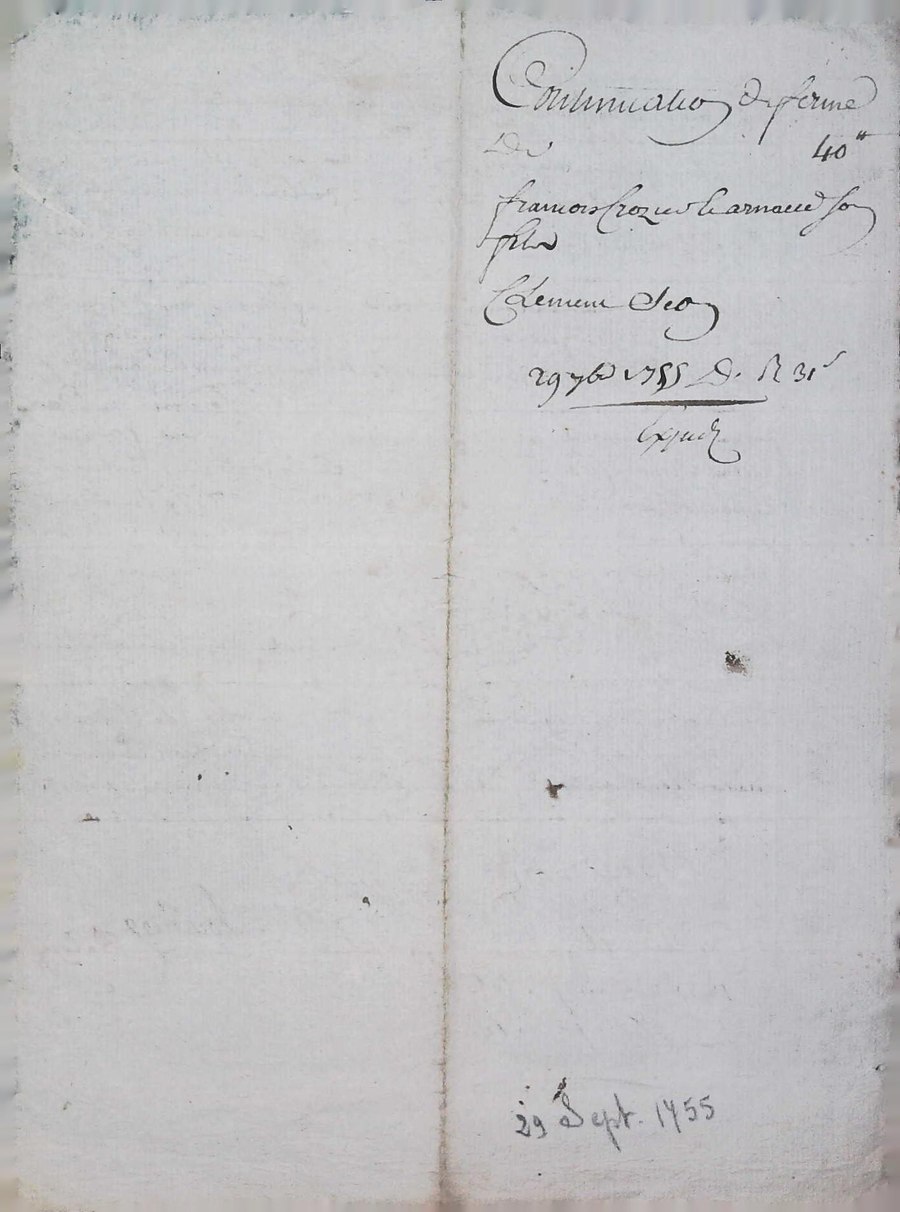 Continuation de ferme
De 40tt
francois Crozet & arnaud son
fils
Clement Seon
29 7bre 1755 D. R 31s
Expedi
29 Sept. 1755